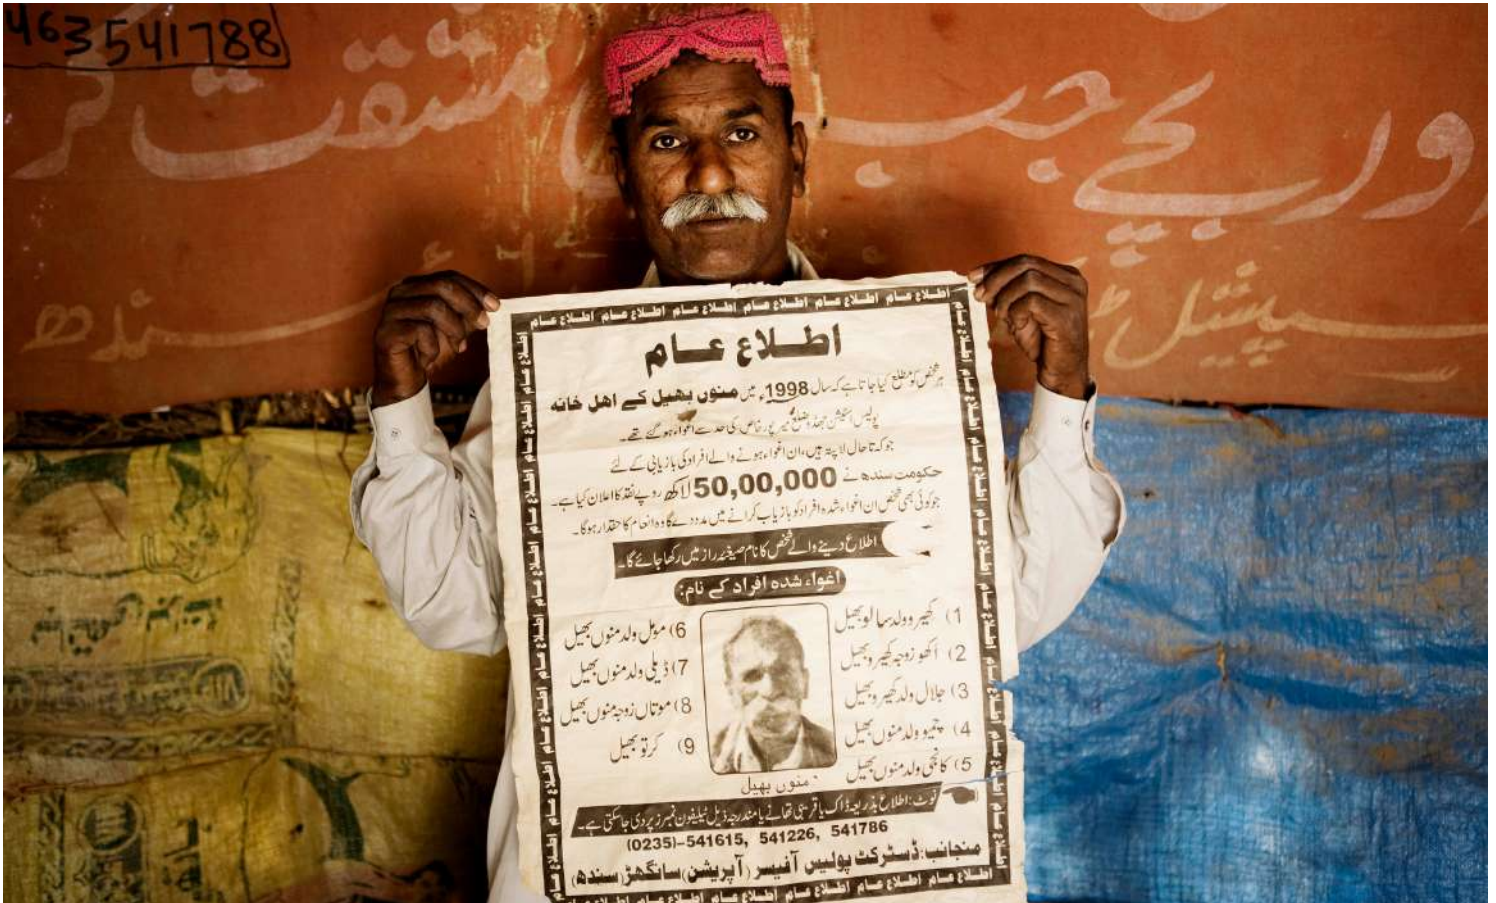 463541788
اور بچے جب مشقت کر
سپیشل
سندھ
اطلاع عام اطلاع عام اطلاع عام اطلاع عام اطلاع عام اطلاع عام
اطلاع عام
ہر شخص کو مطلع کیا جاتا ہے کہ سال 1998ء میں منوں بھیل کے اھل خانہ
پولیس اسٹیشن جھڈو ضلع میرپور خاص کی حد سے اغواء ہو گئے تھے۔
جو کہ تا حال لا پتہ ہیں، ان اغواء ہونے والے افراد کی بازیابی کے لئے
حکومت سندھ نے 50,00,000 لاکھ روپے نقد کا اعلان کیا ہے۔
جو کوئی بھی شخص ان اغواء شدہ افراد کو بازیاب کرانے میں مدد دے گا وہ انعام کا حقدار ہوگا۔
اطلاع دینے والے شخص کا نام صیغہ راز میں رکھا جائے گا۔
اغواء شدہ افراد کے نام:
1) کھیرو ولد سالو بھیل
2) اکھو زوجہ کھیرو بھیل
3) جلال ولد کھیرو بھیل
4) چمیو ولد منوں بھیل
5) کانجی ولد منوں بھیل
6) مومل ولد منوں بھیل
7) ڈیلی ولد منوں بھیل
8) موتاں زوجہ منوں بھیل
9) کرتو بھیل
منوں بھیل
نوٹ: اطلاع بذریعہ ڈاک یا قریبی تھانے یا مندرجہ ذیل ٹیلیفون نمبرز پر دی جاسکتی ہے۔
(0235)-541615, 541226, 541786
منجانب: ڈسٹرکٹ پولیس آفیسر (آپریشن) سانگھڑ (سندھ)
اطلاع عام اطلاع عام اطلاع عام اطلاع عام اطلاع عام اطلاع عام